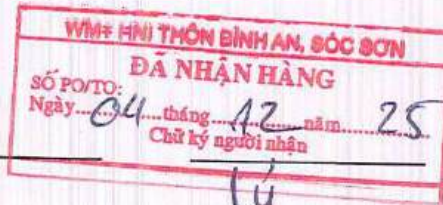 WM+ HNI THÔN BÌNH AN, SÓC SƠN
ĐÃ NHẬN HÀNG
SỐ PO/TO:
Ngày....04....tháng....12....năm....25
Chữ ký người nhận